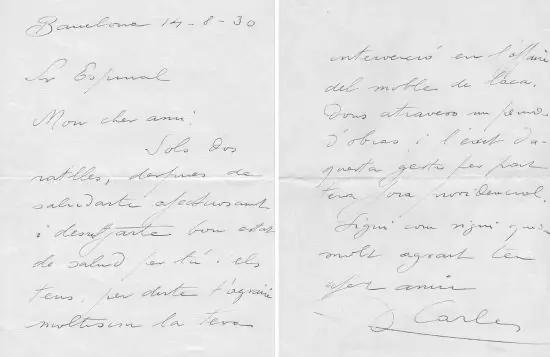 Barcelona 14-8-30
Sr Espinal
Mon cher ami:
Sols dos
ratlles, despres de
saludarte afectuosament
i desitjarte bon estat
de salud per tú i els
teus, per dirte t'agrairé
moltissim la teva
intervenció en l'affaire
del moble de laca.
Dons atravero un periode
d'obres i l'exit d'a-
questa gestio per part
teva fora providencial.
Sigui com sigui queda
molt agrait ten
afex amic
J Carles